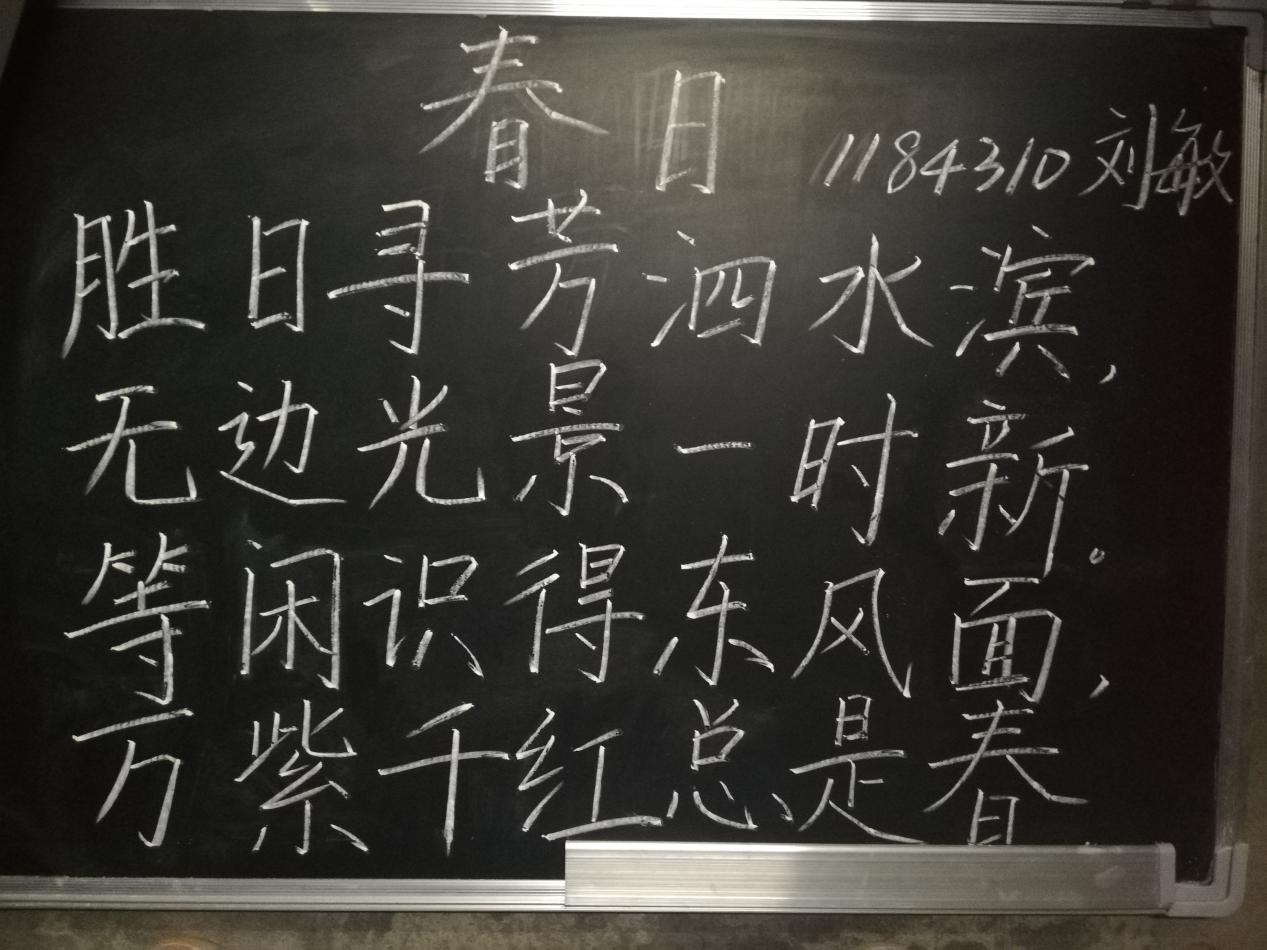 春日
1184310 刘敏
胜日寻芳泗水滨，
无边光景一时新。
等闲识得东风面，
万紫千红总是春